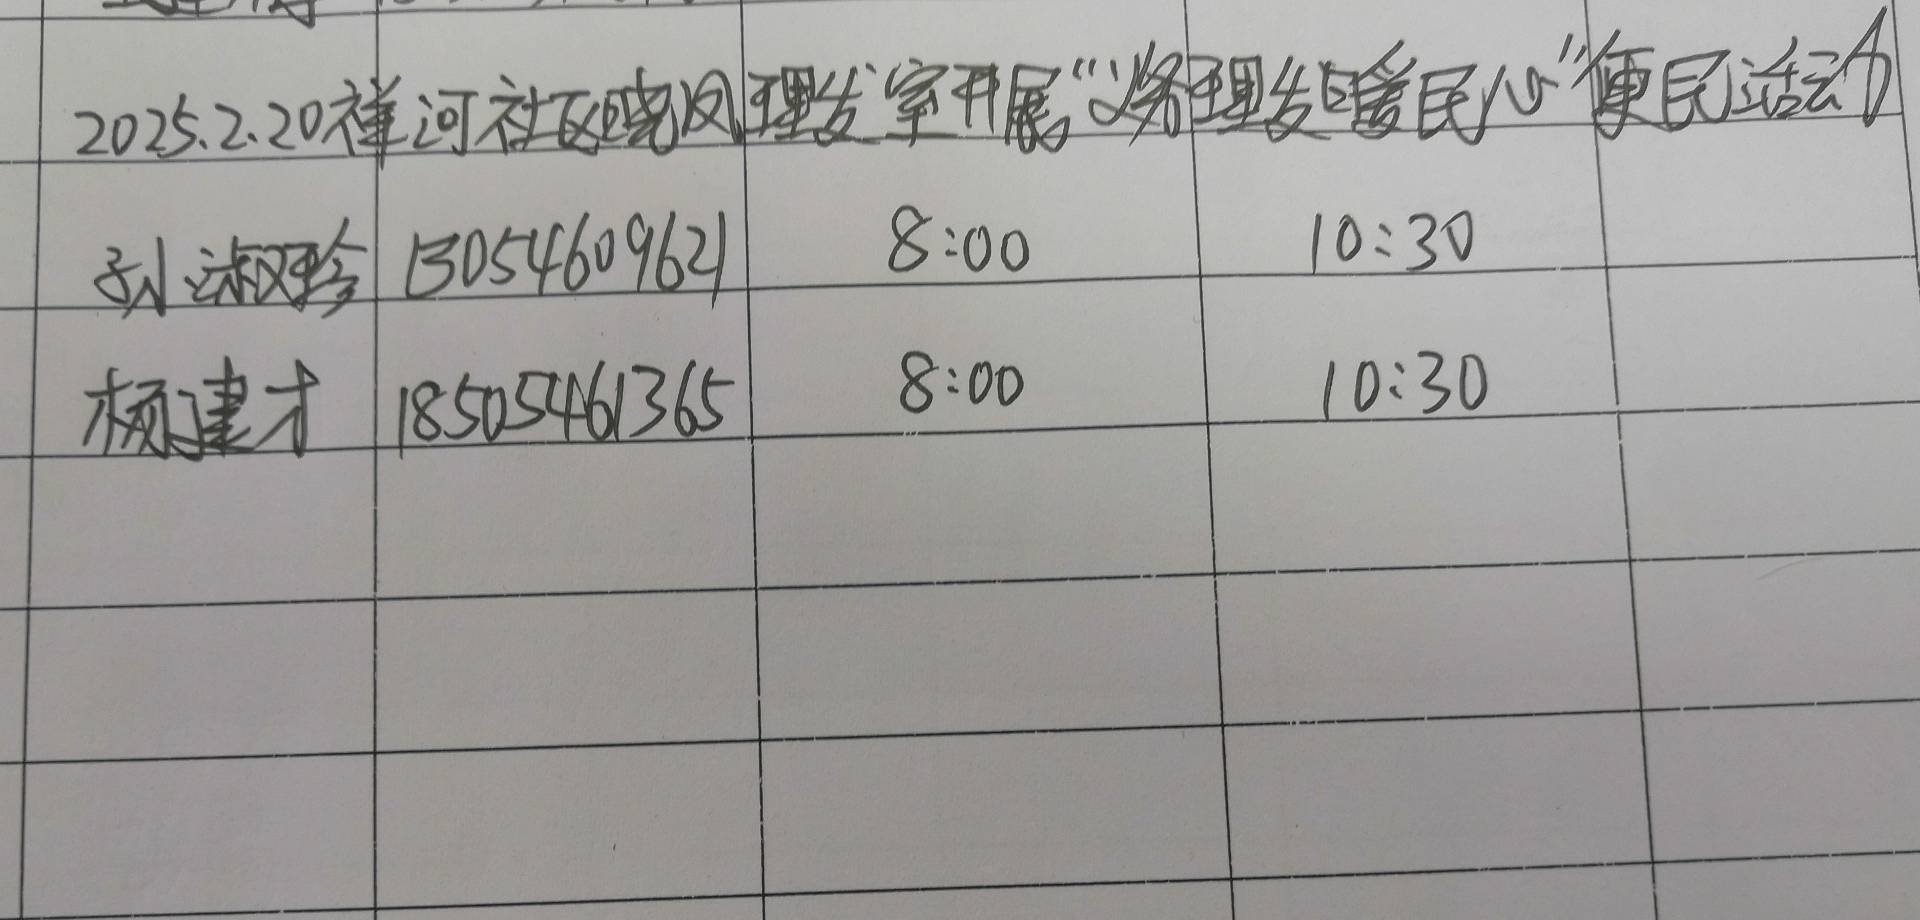 2025.2.20祥河社区晓风理发室开展“义务理发暖民心”便民活动
孙淑珍 13054609621 8:00 10:30
杨建才 18505461365 8:00 10:30